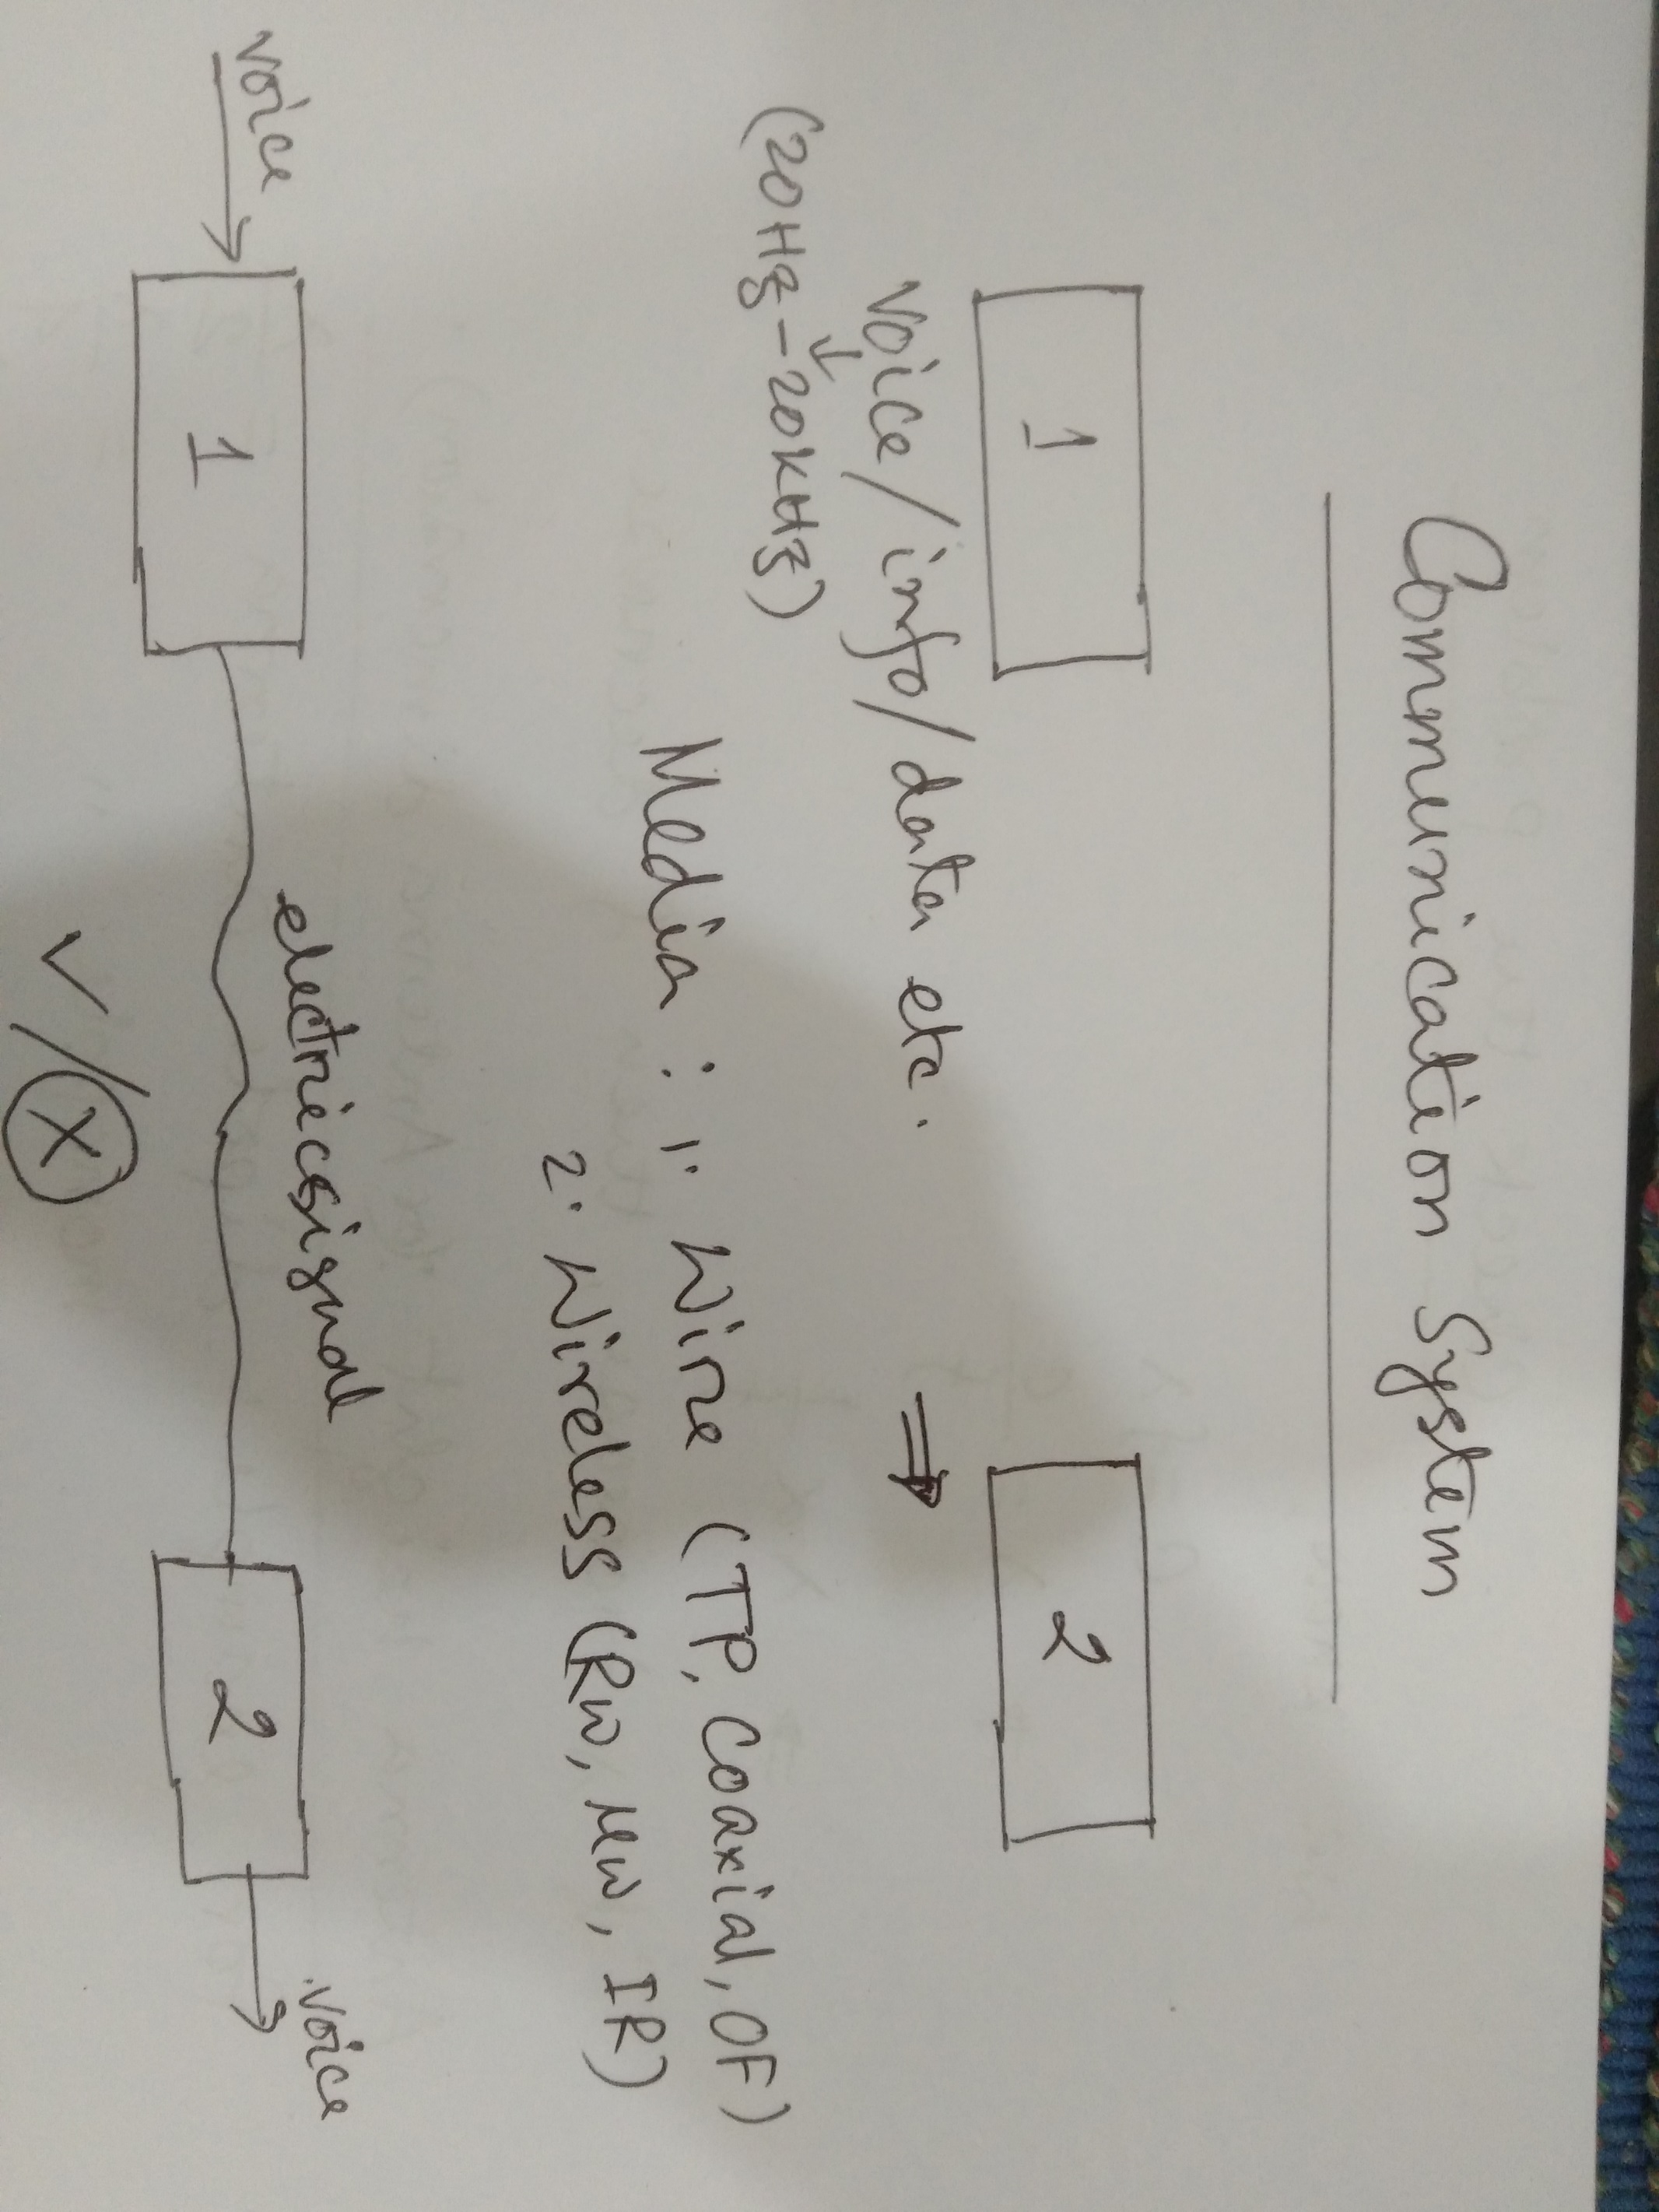 Communication System
1
2
Voice/info/data etc.
⇒
(20Hz-20KHz)
Media : 1. Wire (TP, Coaxial, OF)
2. Wireless (RW, MW, IR)
electricsignal
voice
1
2
voice
✓/X